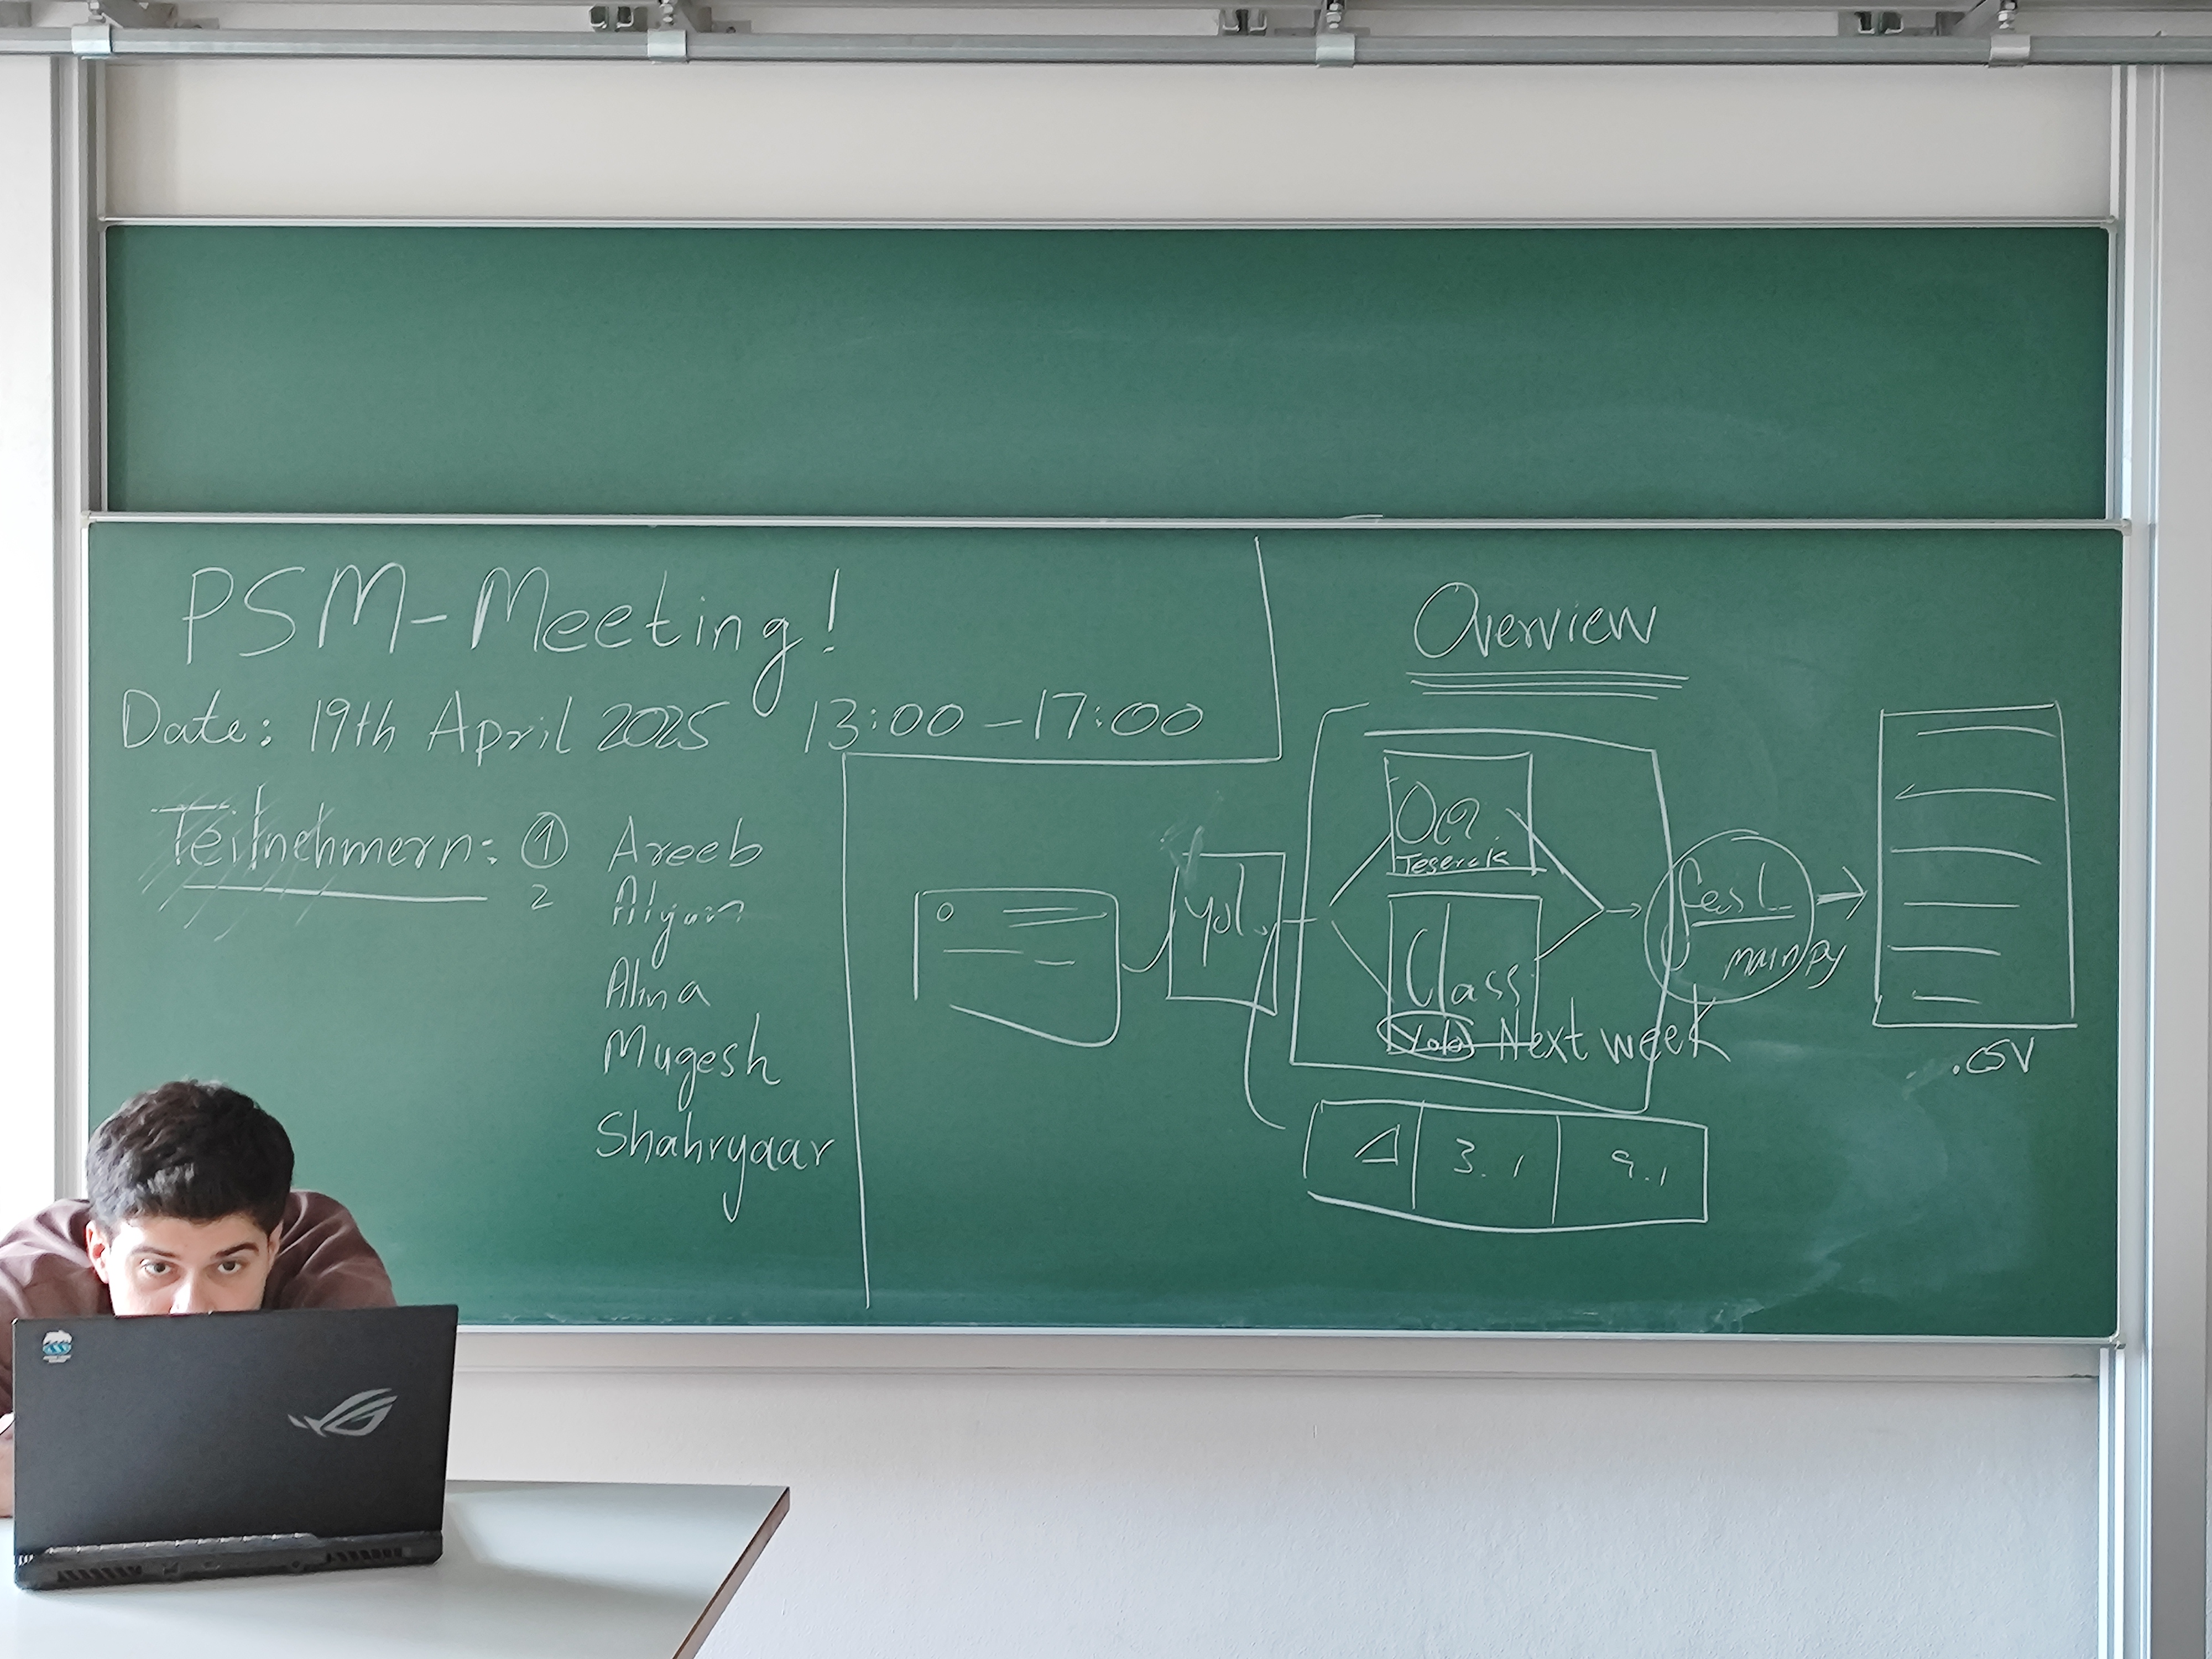 PSM-Meeting!
Date: 19th April 2025 13:00 - 17:00
Teilnehmern: 1 Areeb
2
Alina
Mugesh
Shahryaar
Overview
OCR
Teserak
Yolo
Class
Yolo Next week
main.py
.CSV
3.1
9.1